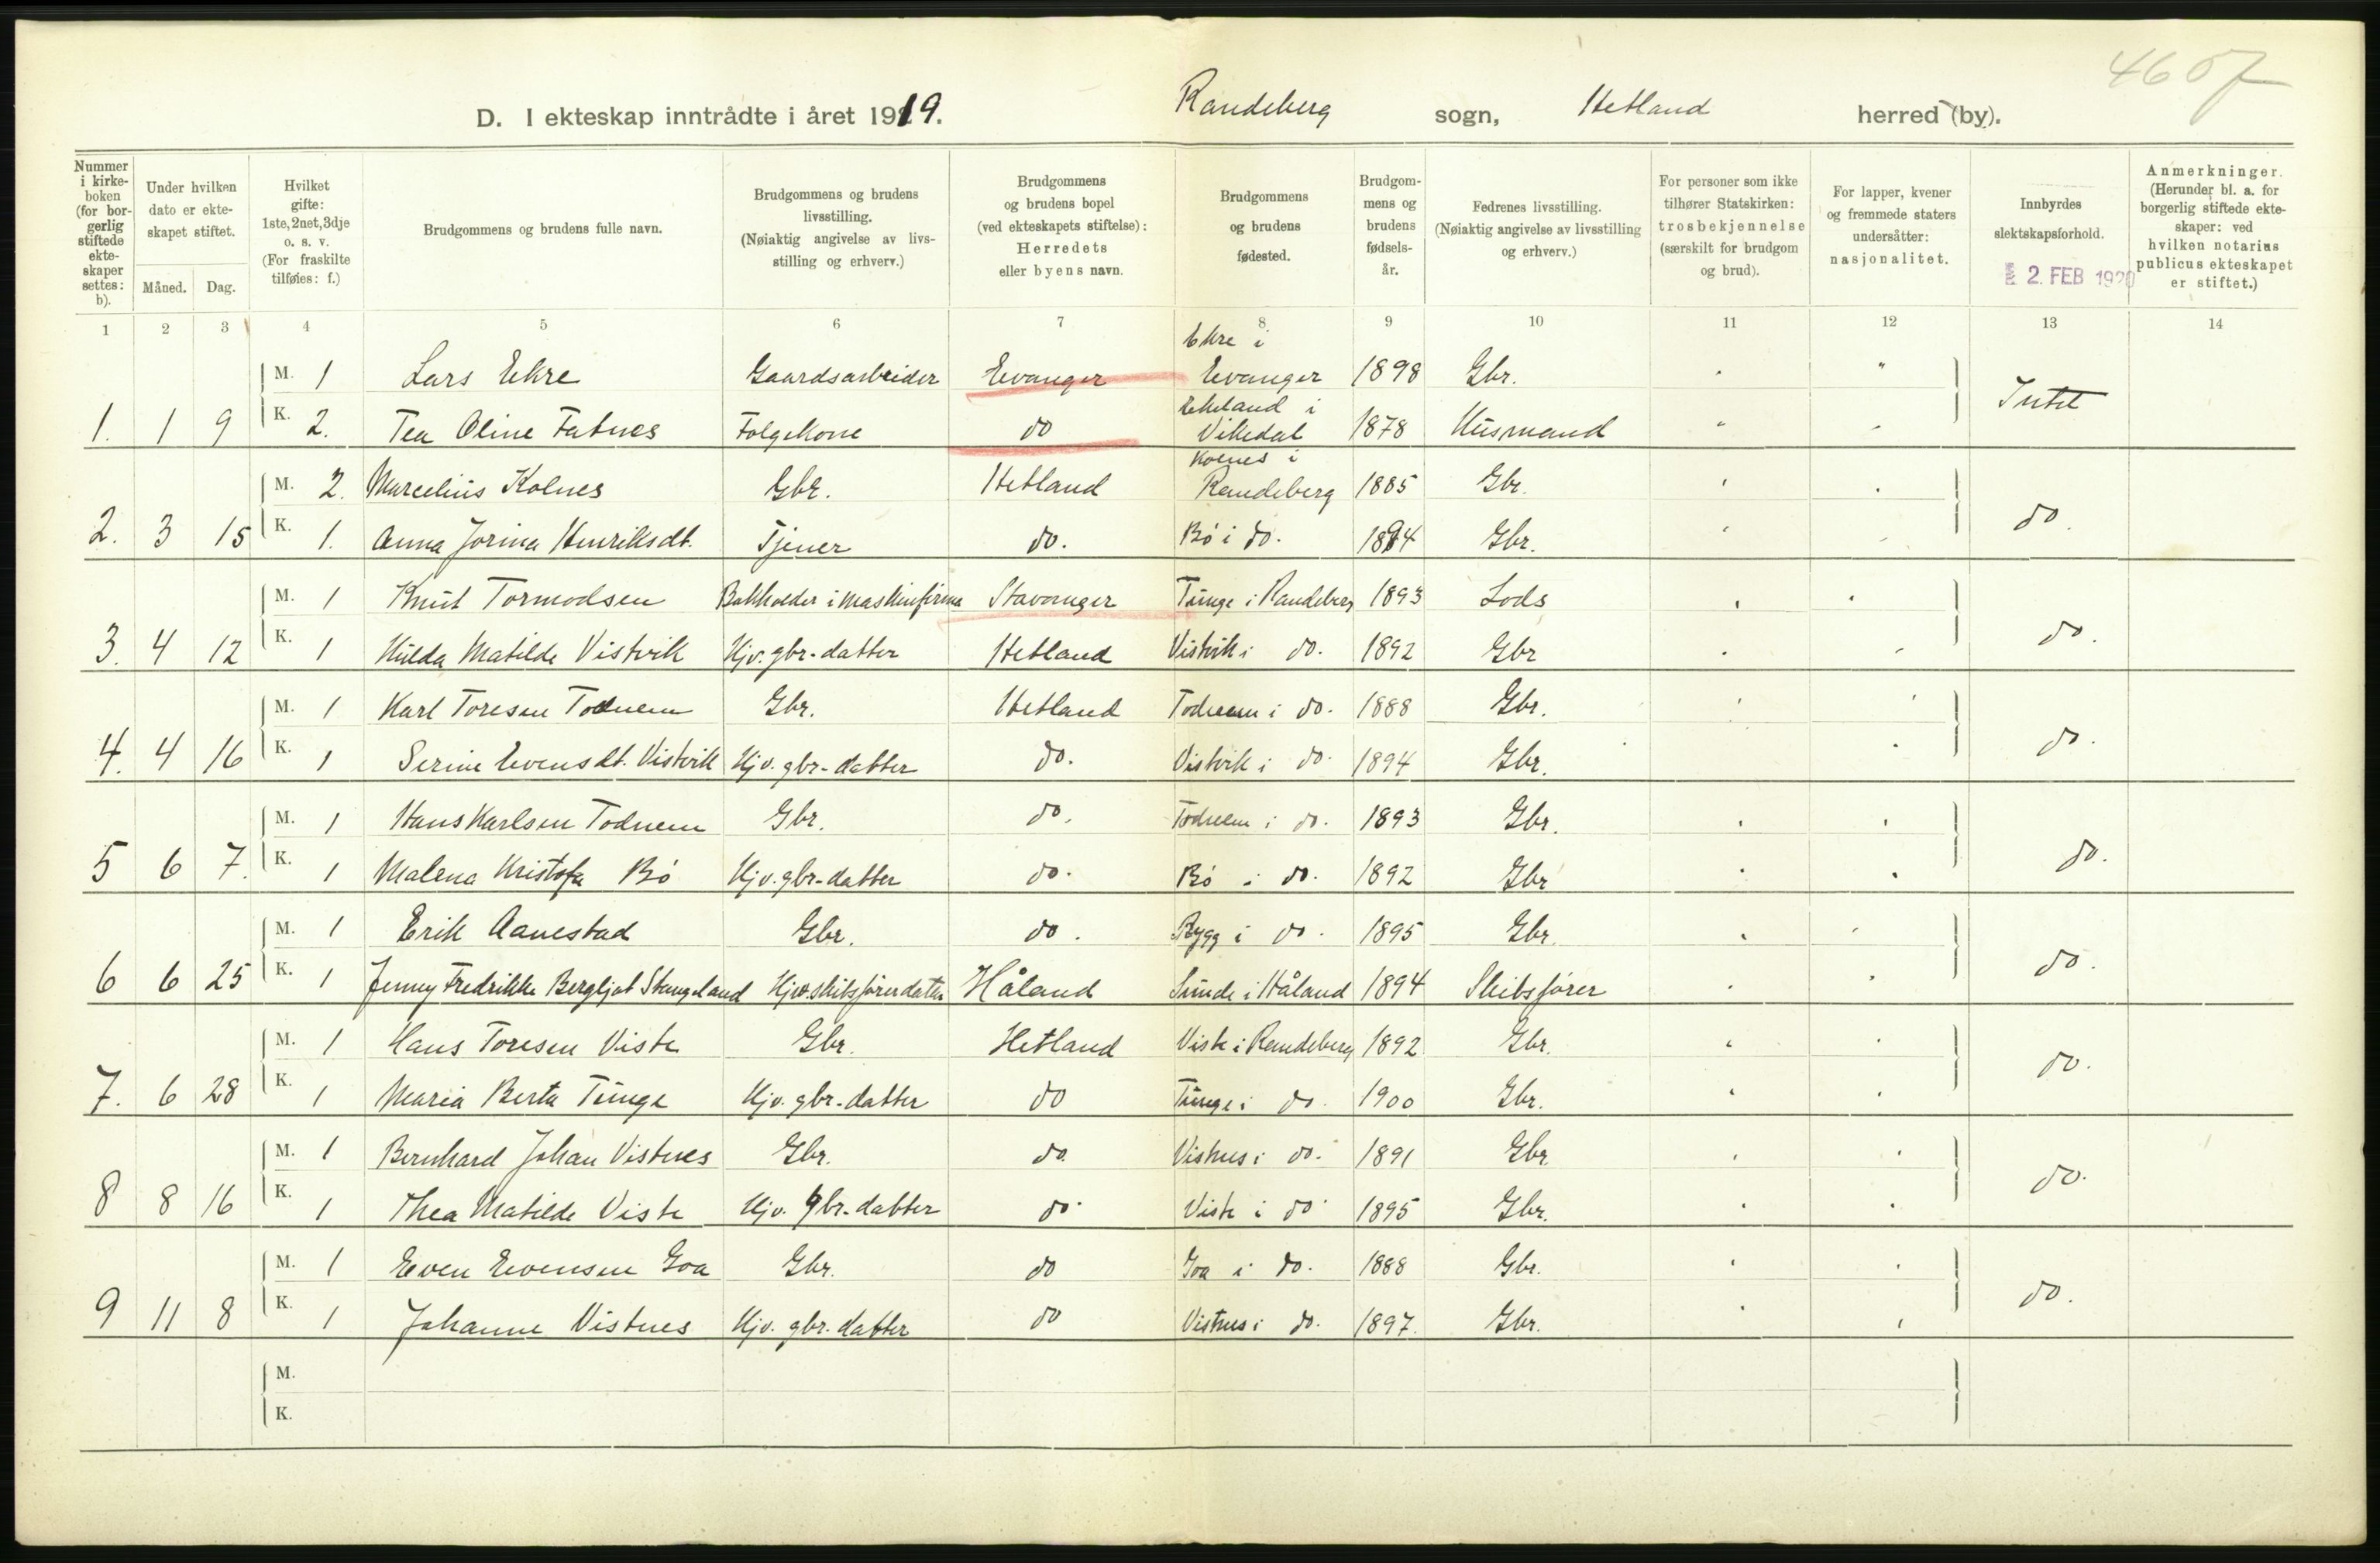 4607
D. I ekteskap inntrådte i året 1919. Randeberg sogn, Hetland herred (by).
Nummer i kirkeboken (for borgerlig stiftede ekteskaper settes: b).
Under hvilken dato er ekteskapet stiftet.
Måned. Dag.
Hvilket gifte: 1ste, 2net, 3dje o. s. v. (For fraskilte tilføies: f.)
Brudgommens og brudens fulle navn.
Brudgommens og brudens livsstilling. (Nøiaktig angivelse av livsstilling og erhverv.)
Brudgommens og brudens bopel (ved ekteskapets stiftelse): Herredets eller byens navn.
Brudgommens og brudens fødested.
Brudgommens og brudens fødselsår.
Fedrenes livsstilling. (Nøiaktig angivelse av livsstilling og erhverv.)
For personer som ikke tilhører Statskirken: trosbekjennelse (særskilt for brudgom og brud).
For lapper, kvener og fremmede staters undersåtter: nasjonalitet.
Innbyrdes slektskapsforhold.
2. FEB 1920
Anmerkninger. (Herunder bl. a. for borgerlig stiftede ekteskaper: ved hvilken notarius publicus ekteskapet er stiftet.)
1 2 3 4 5 6 7 8 9 10 11 12 13 14
M. 1 Lars Ekre Gaardsarbeider Evanger Ekre i Evanger 1898 Gbr. " "
1. 1 9 K. 2. Tea Oline Fatnes Folgekone do Ekeland i Vikedal 1878 Husmand " " Intet
M. 2. Marcelius Kolnes Gbr. Hetland Kolnes i Randeberg 1885 Gbr.
2. 3 15 K. 1. Anna Jorina Henriksdt. Tjener do. Bö i do. 1894 Gbr. do.
M. 1 Knut Tormodsen Bokholder i maskinfirma Stavanger Tunge i Randeberg 1893 Lods
3. 4 12 K. 1 Hulda Matilde Vistvik Hjv. gbr-datter Hetland Vistvik i do. 1892 Gbr do.
M. 1 Karl Toresen Todnem Gbr. Hetland Todnem i do. 1888 Gbr.
4. 4 16 K. 1 Serine Evensdt. Vistvik Hjv. gbr-datter do. Vistvik i do. 1894 Gbr. do.
M. 1 Hans Karlsen Todnem Gbr. do. Todnem i do. 1893 Gbr.
5 6 7. K. 1 Malena Kristofa Bö Hjv. gbr-datter do. Bö i do. 1892 Gbr do.
M. 1 Erik Aanestad Gbr. do. Bygg i do. 1895 Gbr.
6 6 25 K. 1 Jenny Fredrikke Bergljot Stangeland Hjv. skibsförerdatter Håland Sunde i Håland 1894 Skibsförer do.
M. 1 Hans Toresen Viste Gbr. Hetland Viste i Randeberg 1892 Gbr.
7. 6 28 K. 1 Maria Berta Tunge Hjv. gbr-datter do Tunge i do. 1900 Gbr. do.
M. 1 Bernhard Johan Vistnes Gbr. do. Vistnes i do. 1891 Gbr.
8 8 16 K. 1 Thea Matilde Viste Hjv. gbr-datter do. Viste i do 1895 Gbr. do.
M. 1 Even Evensen Goa Gbr. do Goa i do. 1888 Gbr.
9 11 8 K. 1 Johanne Vistnes Hjv. gbr. datter do Vistnes i do. 1897. Gbr. do.
M.
K.